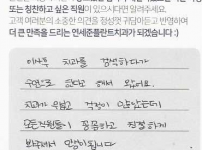 또는 칭찬하고 싶은 직원이 있으시다면 알려주세요.
고객 여러분의 소중한 의견을 정성껏 귀담아듣고 반영하여
더 큰 만족을 드리는 연세준플란트치과가 되겠습니다 :)
이사후 치과를 검색하다가
우연으로 온다고 해서 왔어요.
치과가 무섭고 걱정이 있었는데
모든직원들이 꼼꼼하고 친절하게
봐주셔서 안심이됩니다